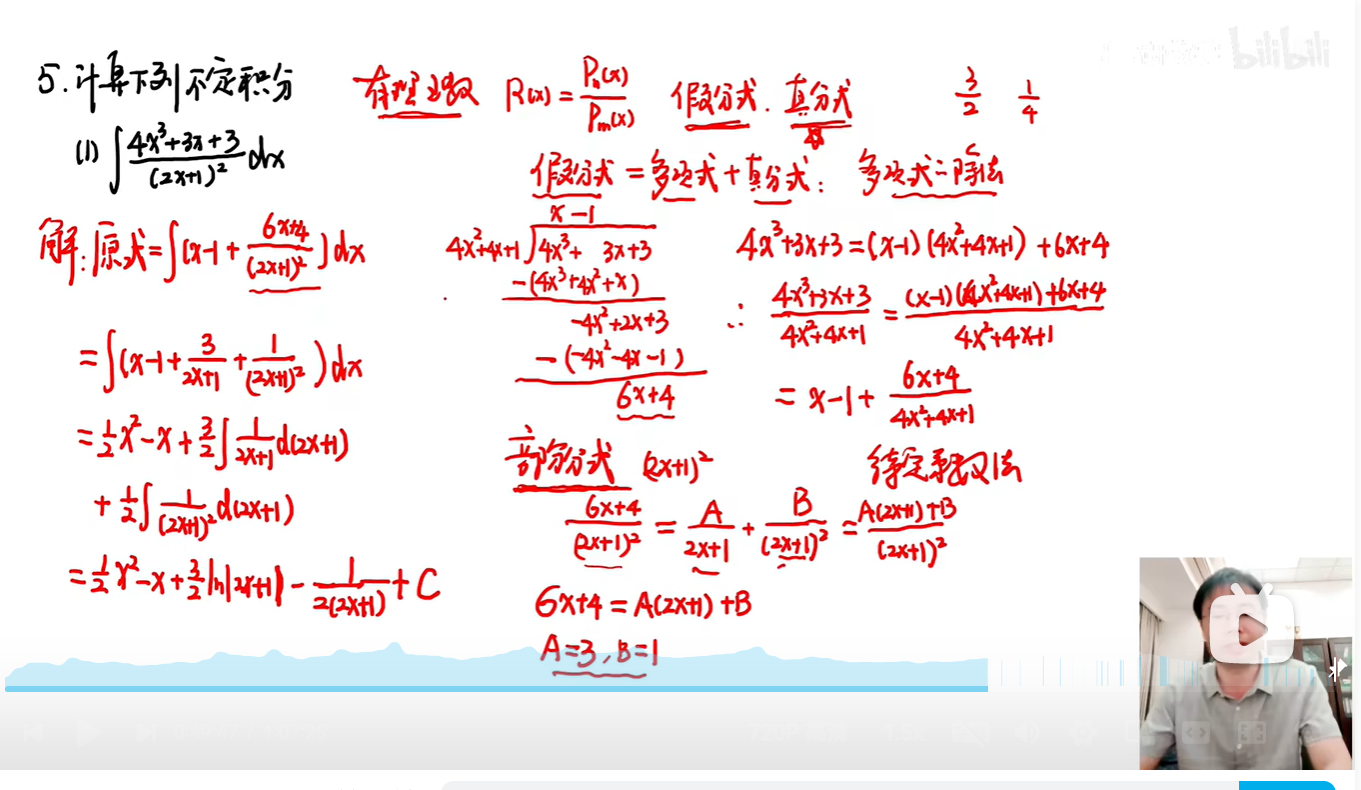 5.计算下列不定积分
(1) ∫ (4x³+3x+3)/(2x+1)² dx
解:原式=∫(x-1+(6x+4)/(2x+1)²)dx
=∫(x-1+3/(2x+1)+1/(2x+1)²)dx
=½x²-x+3/2∫1/(2x+1)d(2x+1)
+½∫1/(2x+1)²d(2x+1)
=½x²-x+3/2ln|2x+1|-1/(2(2x+1))+C
有理函数 R(x)=Pₙ(x)/Pₘ(x) 假分式.真分式 3/2 1/4
假分式=多项式+真分式: 多项式除法
x-1
4x²+4x+1)4x³+ 3x+3
-(4x³+4x²+x)
-4x²+2x+3
-(-4x²-4x-1)
6x+4
4x³+3x+3=(x-1)(4x²+4x+1)+6x+4
∴ (4x³+3x+3)/(4x²+4x+1)=((x-1)(4x²+4x+1)+6x+4)/(4x²+4x+1)
=x-1+(6x+4)/(4x²+4x+1)
部分分式 (2x+1)² 待定系数法
(6x+4)/(2x+1)²=A/(2x+1)+B/(2x+1)²=(A(2x+1)+B)/(2x+1)²
6x+4=A(2x+1)+B
A=3,B=1
bilibili